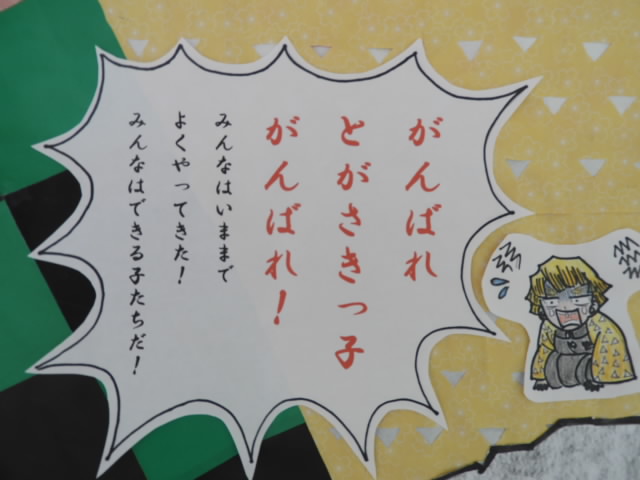 がんばれ
とがさきっ子
がんばれ！
みんなはいままで
よくやってきた！
みんなはできる子たちだ！